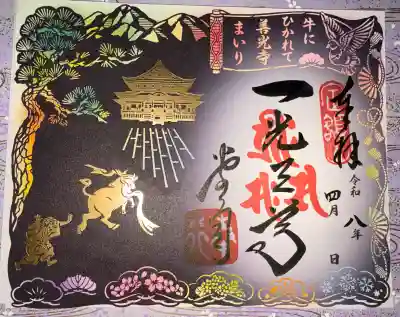 牛に
ひかれて
善光寺
まいり
奉拝
令和
八年
四月
日
一光三尊